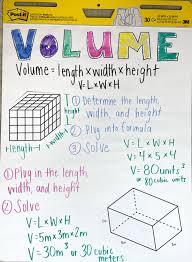 Post-it
30
VOLUME
Volume = length × width × height
V = L × W × H
① Determine the length,
width, and height
② Plug into formula
③ Solve
height
length
width
V = L × W × H
V = 4 × 5 × 4
V = 80 units³
or 80 cubic units
① Plug in the length,
width, and height
② Solve
V = L × W × H
V = 5m × 3m × 2m
V = 30m³ or 30 cubic
meters